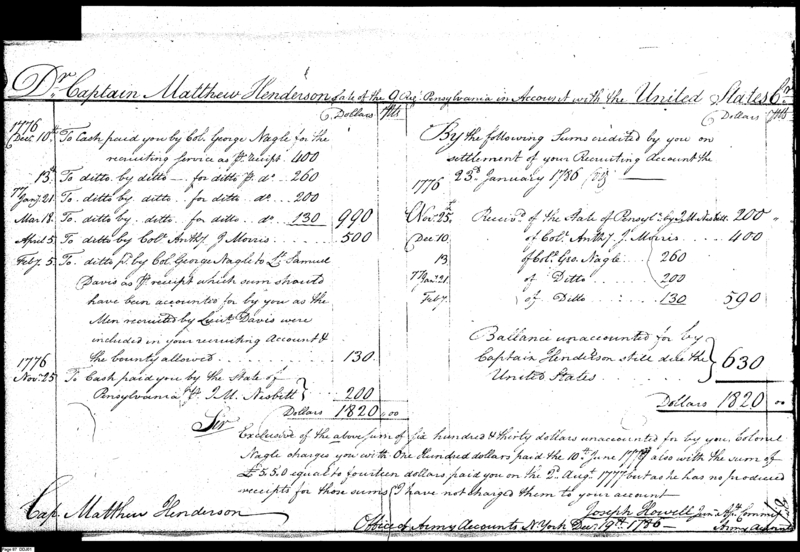 Dr. Captain Matthew Henderson late of the 9 Reg. Pensylvania in Account with the United States Cr.
Dollars 90ths
1776
Decr. 10th To Cash paid you by Col. George Nagle for the
recruiting service as pr. receipt 400
13th To ditto by ditto for ditto pr. do. 260
77 Jany. 21 To ditto by ditto for ditto do. 200
Mar 18 To ditto by ditto for ditto do. 130 990
April 5 To ditto by Colo. Anthy. J Morris 500
Feby. 5 To ditto pd. by Col. George Nagle to Lt. Samuel
Davis as pr. receipt which sum should
have been accounted for by you as the
Men recruited by Lieut. Davis were
included in your recruiting Account &
the County allowed 130
1776
Novr. 25 To Cash paid you by the State of
Pensylvania pr. J. M. Nesbitt 200
Dollars 1820 00
Dollars 90ths
By the following Sums credited by you on
settlement of your Recruiting Account the
23d. January 1786
1776
Novr. 25 Receivd. of the State of Pensyla. by J M Nesbitt 200 "
Dec 10 of Colo. Anthy. J Morris 400
13 of Colo. Geo. Nagle 260
77 Jany. 21 of Ditto 200
Feby. of Ditto 130 590
Ballance unaccounted for by
Captain Henderson still due the
United States 630
Dollars 1820 00
Sir
Exclusive of the above sum of six hundred & thirty dollars unaccounted for by you, Colonel
Nagle charges you with One Hundred dollars paid the 10th. June 1777 also with the sum of
£5.5.0 equal to fourteen dollars paid you on the 2d. Augt. 1777 but as he has no produced
receipts for those sums I have not charged them to your account
Joseph Howell Junr. Asst. Commr.
Army Accounts
Cap. Matthew Henderson
Office of Army Accounts N. York Decr. 19th. 1786
Page 87